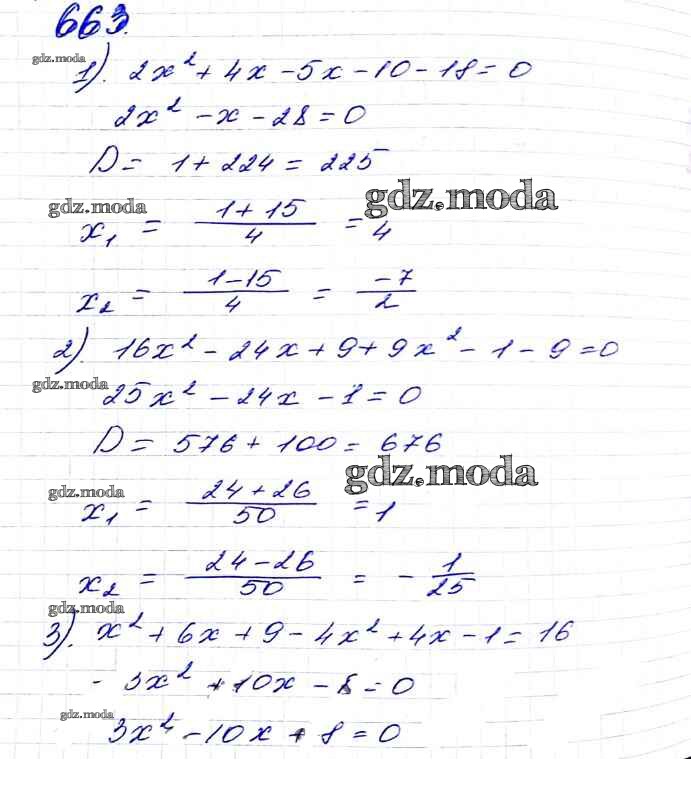 663.
gdz.moda
1). 2x² + 4x - 5x - 10 - 18 = 0
2x² - x - 28 = 0
D = 1 + 224 = 225
gdz.moda
gdz.moda
x₁ = (1 + 15)/4 = 4
x₂ = (1 - 15)/4 = -7/2
2). 16x² - 24x + 9 + 9x² - 1 - 9 = 0
gdz.moda
25x² - 24x - 1 = 0
D = 576 + 100 = 676
gdz.moda
gdz.moda
x₁ = (24 + 26)/50 = 1
x₂ = (24 - 26)/50 = - 1/25
gdz.moda
3). x² + 6x + 9 - 4x² + 4x - 1 = 16
- 3x² + 10x - 8 = 0
gdz.moda
3x² - 10x + 8 = 0